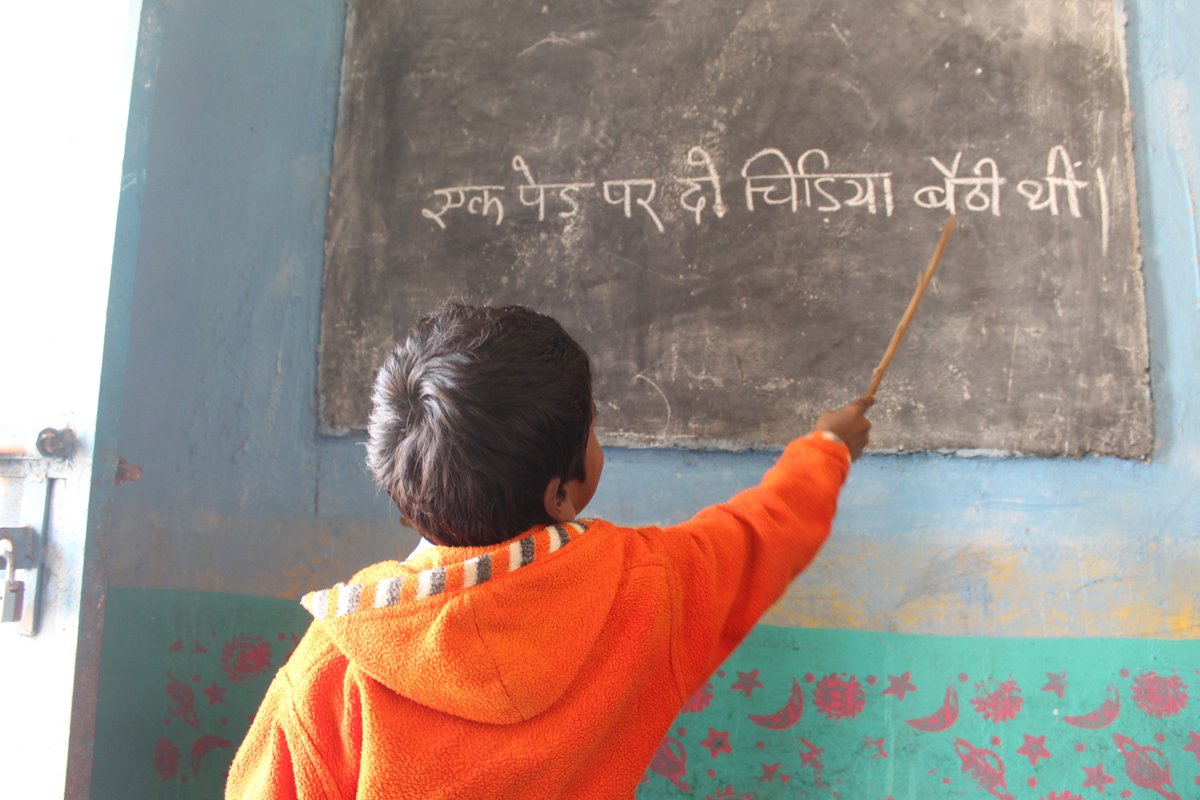 एक पेड पर दो चिड़िया बैठी थीं।